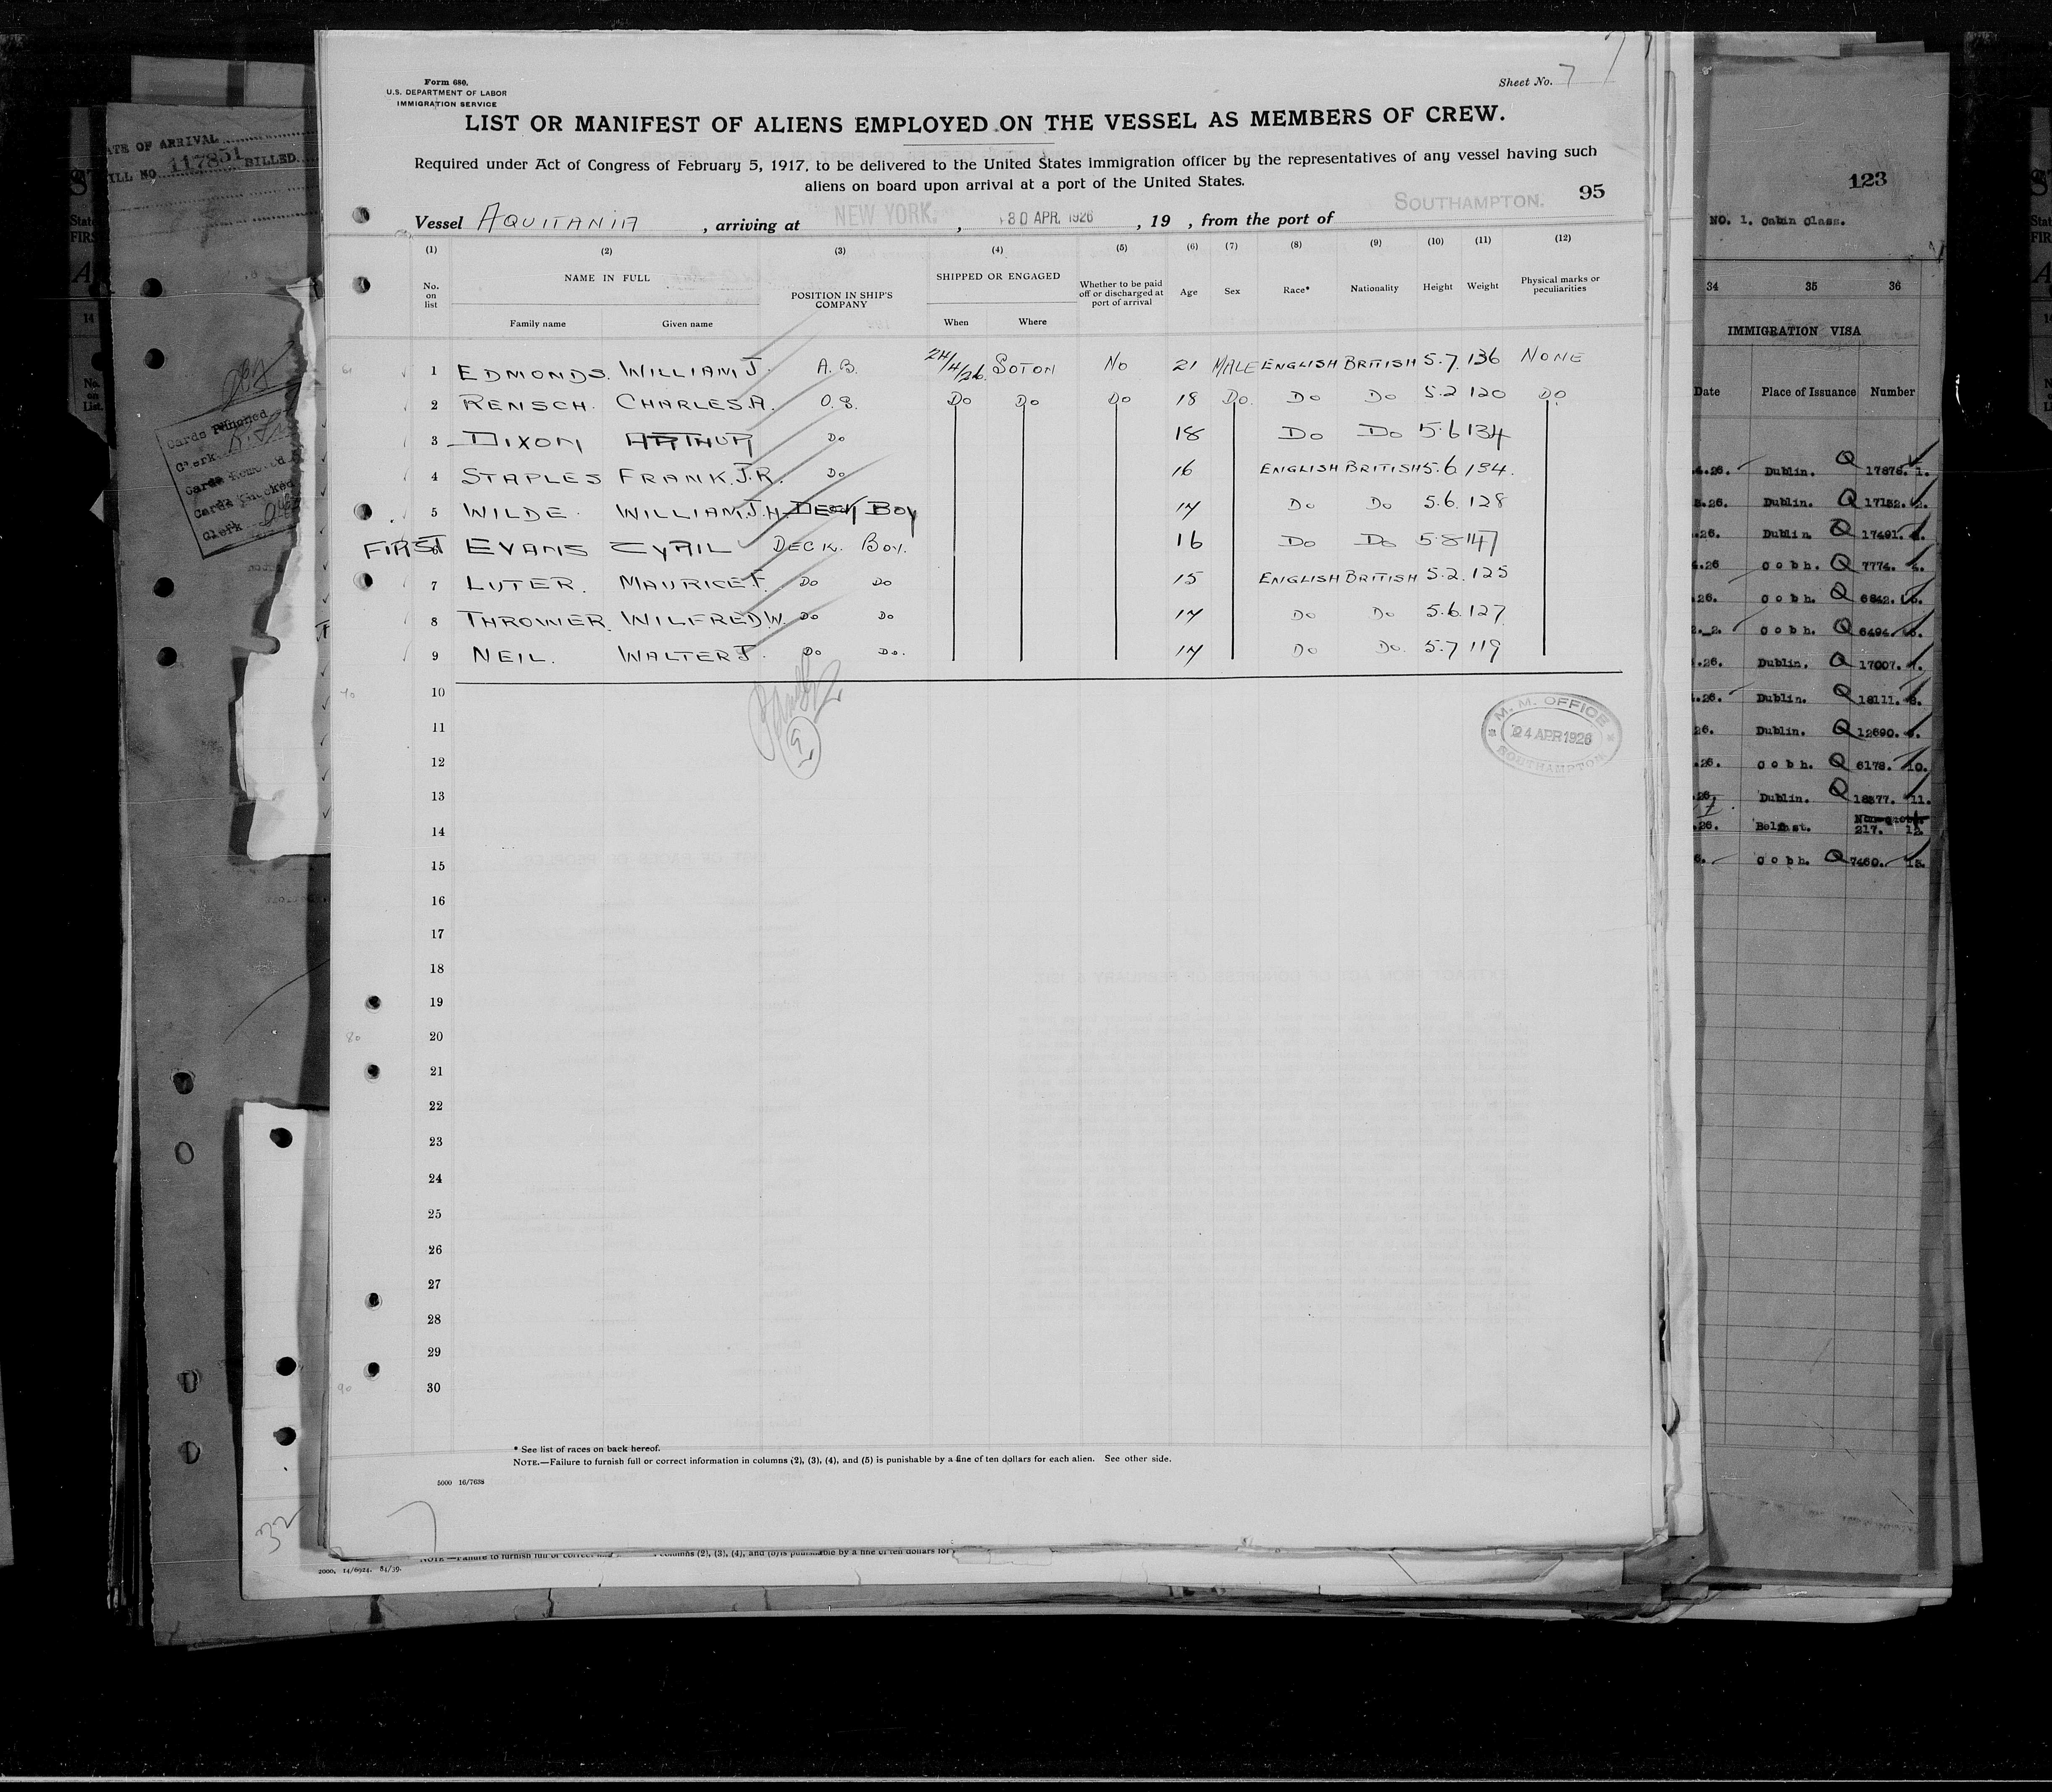 Form 680.
U.S. DEPARTMENT OF LABOR
IMMIGRATION SERVICE
Sheet No. 7
LIST OR MANIFEST OF ALIENS EMPLOYED ON THE VESSEL AS MEMBERS OF CREW.
Required under Act of Congress of February 5, 1917, to be delivered to the United States immigration officer by the representatives of any vessel having such
aliens on board upon arrival at a port of the United States.
95
Vessel AQUITANIA, arriving at NEW YORK, 30 APR. 1926, 19 , from the port of SOUTHAMPTON.
(1) (2) (3) (4) (5) (6) (7) (8) (9) (10) (11) (12)
No. on list NAME IN FULL POSITION IN SHIP'S COMPANY SHIPPED OR ENGAGED Whether to be paid off or discharged at port of arrival Age Sex Race* Nationality Height Weight Physical marks or peculiarities
Family name Given name When Where
1 EDMONDS. WILLIAM J. A.B. 24/4/26. SOTON NO 21 MALE ENGLISH BRITISH 5.7. 136 NONE
2 RENSCH. CHARLES.A. O.S. DO DO DO 18 DO. DO DO 5.2 120 DO
3 DIXON ARTHUR DO 18 DO DO 5.6 134
4 STAPLES FRANK.J.R. DO 16 ENGLISH BRITISH 5.6 134.
5 WILDE. WILLIAM.J.H. DECK BOY 17 DO DO 5.6. 128
FIRST 6 EVANS CYRIL DECK. BOY. 16 DO DO 5.8 147
7 LUTER. MAURICE F. DO DO 15 ENGLISH BRITISH 5.2. 125
8 THROWER. WILFRED.W. DO DO 17 DO DO 5.6. 127.
9 NEIL. WALTER J. DO DO. 17 DO DO. 5.7 119
10
11
12
13
14
15
16
17
18
19
20
21
22
23
24
25
26
27
28
29
30
9
M. M. OFFICE
24 APR 1926
SOUTHAMPTON
* See list of races on back hereof.
NOTE.—Failure to furnish full or correct information in columns (2), (3), (4), and (5) is punishable by a fine of ten dollars for each alien. See other side.
5000 16/7638
7
32
2000. 14/6924. 84/39.
DATE OF ARRIVAL
BILL NO 117851 BILLED
Cards Punched
Clerk
Cards Checked
Clerk
123
NO. 1. Cabin Class.
34 35 36
IMMIGRATION VISA
Date Place of Issuance Number
.4.26. Dublin. Q 17878. 1.
.26. Dublin. Q 17152. 2.
.26. Dublin. Q 17491.
.26 Cobh. Q 7774. 4.
.26. Cobh. Q 6842. 5.
Cobh. Q 6494.
.26. Dublin. Q 17007. 7.
.26. Dublin. Q 18111. 8.
26. Dublin. Q 12690.
.26. Cobh. Q 6178. 10.
.26. Dublin. Q 18377. 11.
.26. Belfast. Non-quota 217. 12.
6. Cobh. Q 7460. 13.